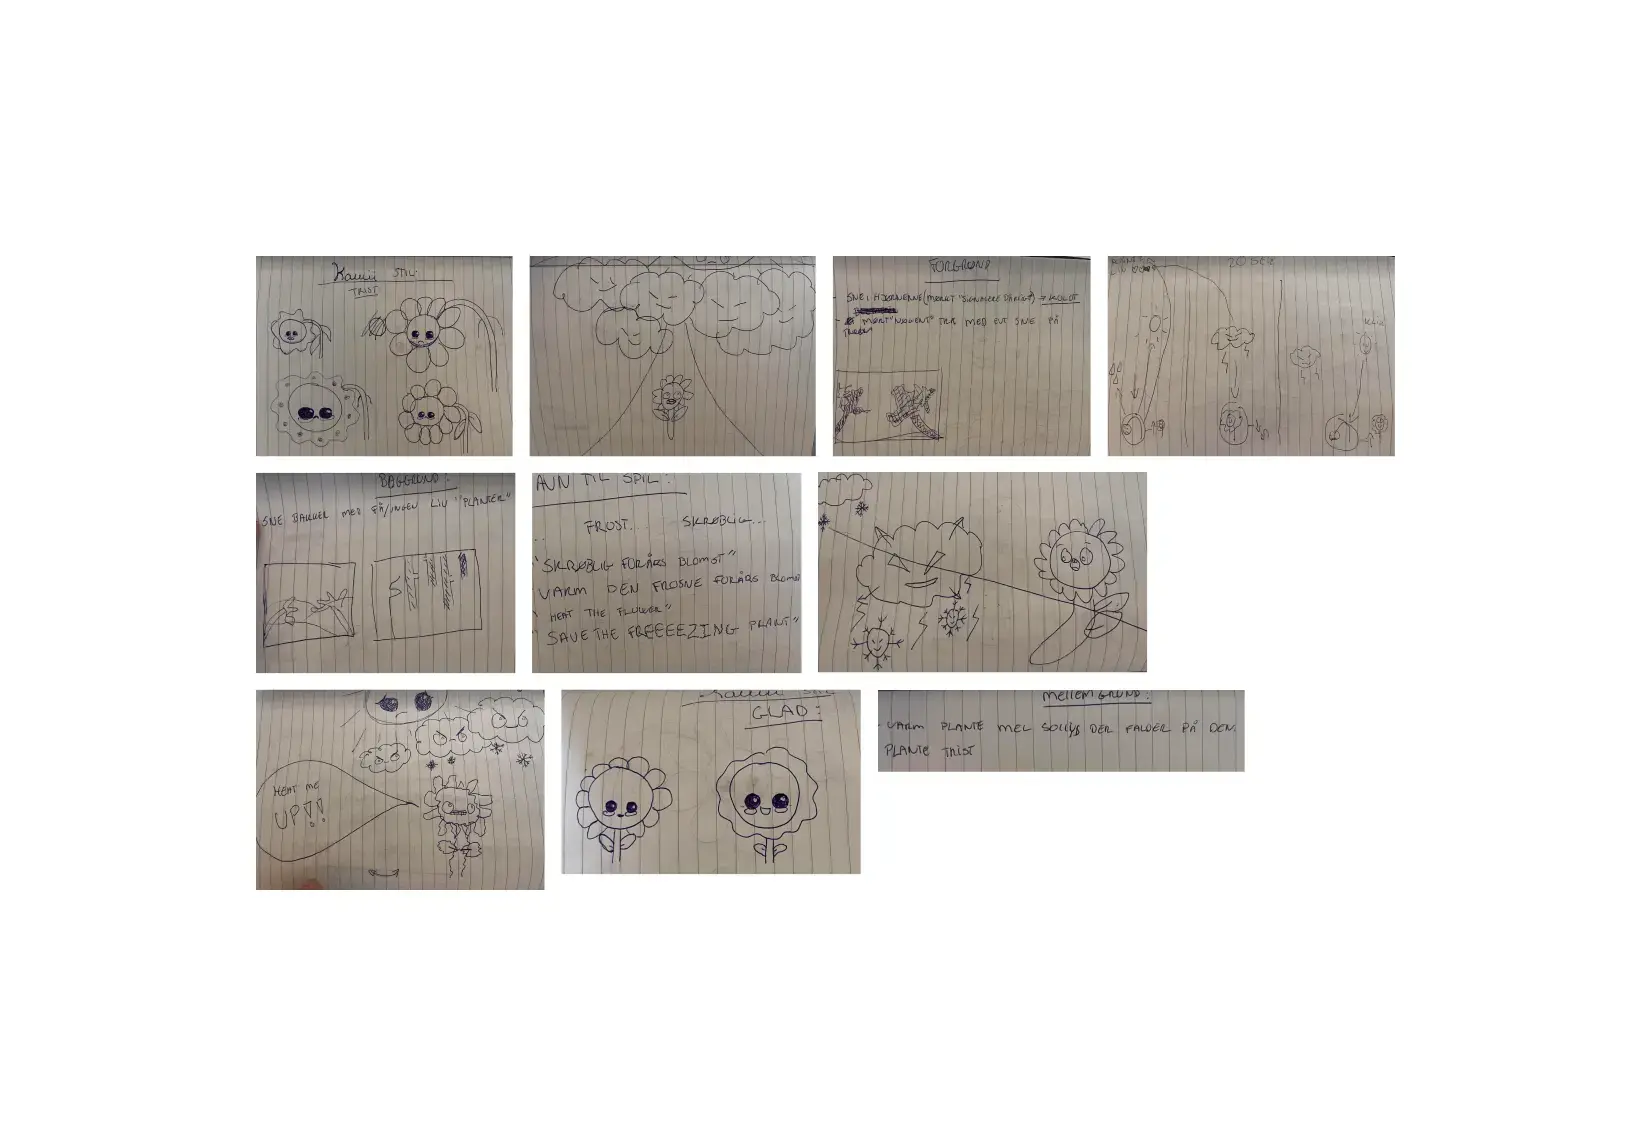 STIL:
TRIST
FORGRUND
SNE I HJØRNERNE (MØRKT "SIGNALERE DÅRLIGT) → KOLDT
MØRKT "NØGENT" TRÆ MED LIT SNE PÅ
20 SEK
KLIK
BAGGRUND:
SNE BAKKER MED FÅ/INGEN LIV "PLANTER"
AVN TIL SPIL:
FROST... SKRØBLIG...
"SKRØBLIG FORÅRS BLOMST"
VARM DEN FROSNE FORÅRS BLOMST
"HEAT THE FLOWER"
"SAVE THE FREEEEZING PLANT"
HEAT ME
UP!!
GLAD:
MELLEMGRUND:
- VARM PLANTE MED SOLLYS DER FALDER PÅ DEN.
PLANTE TRIST